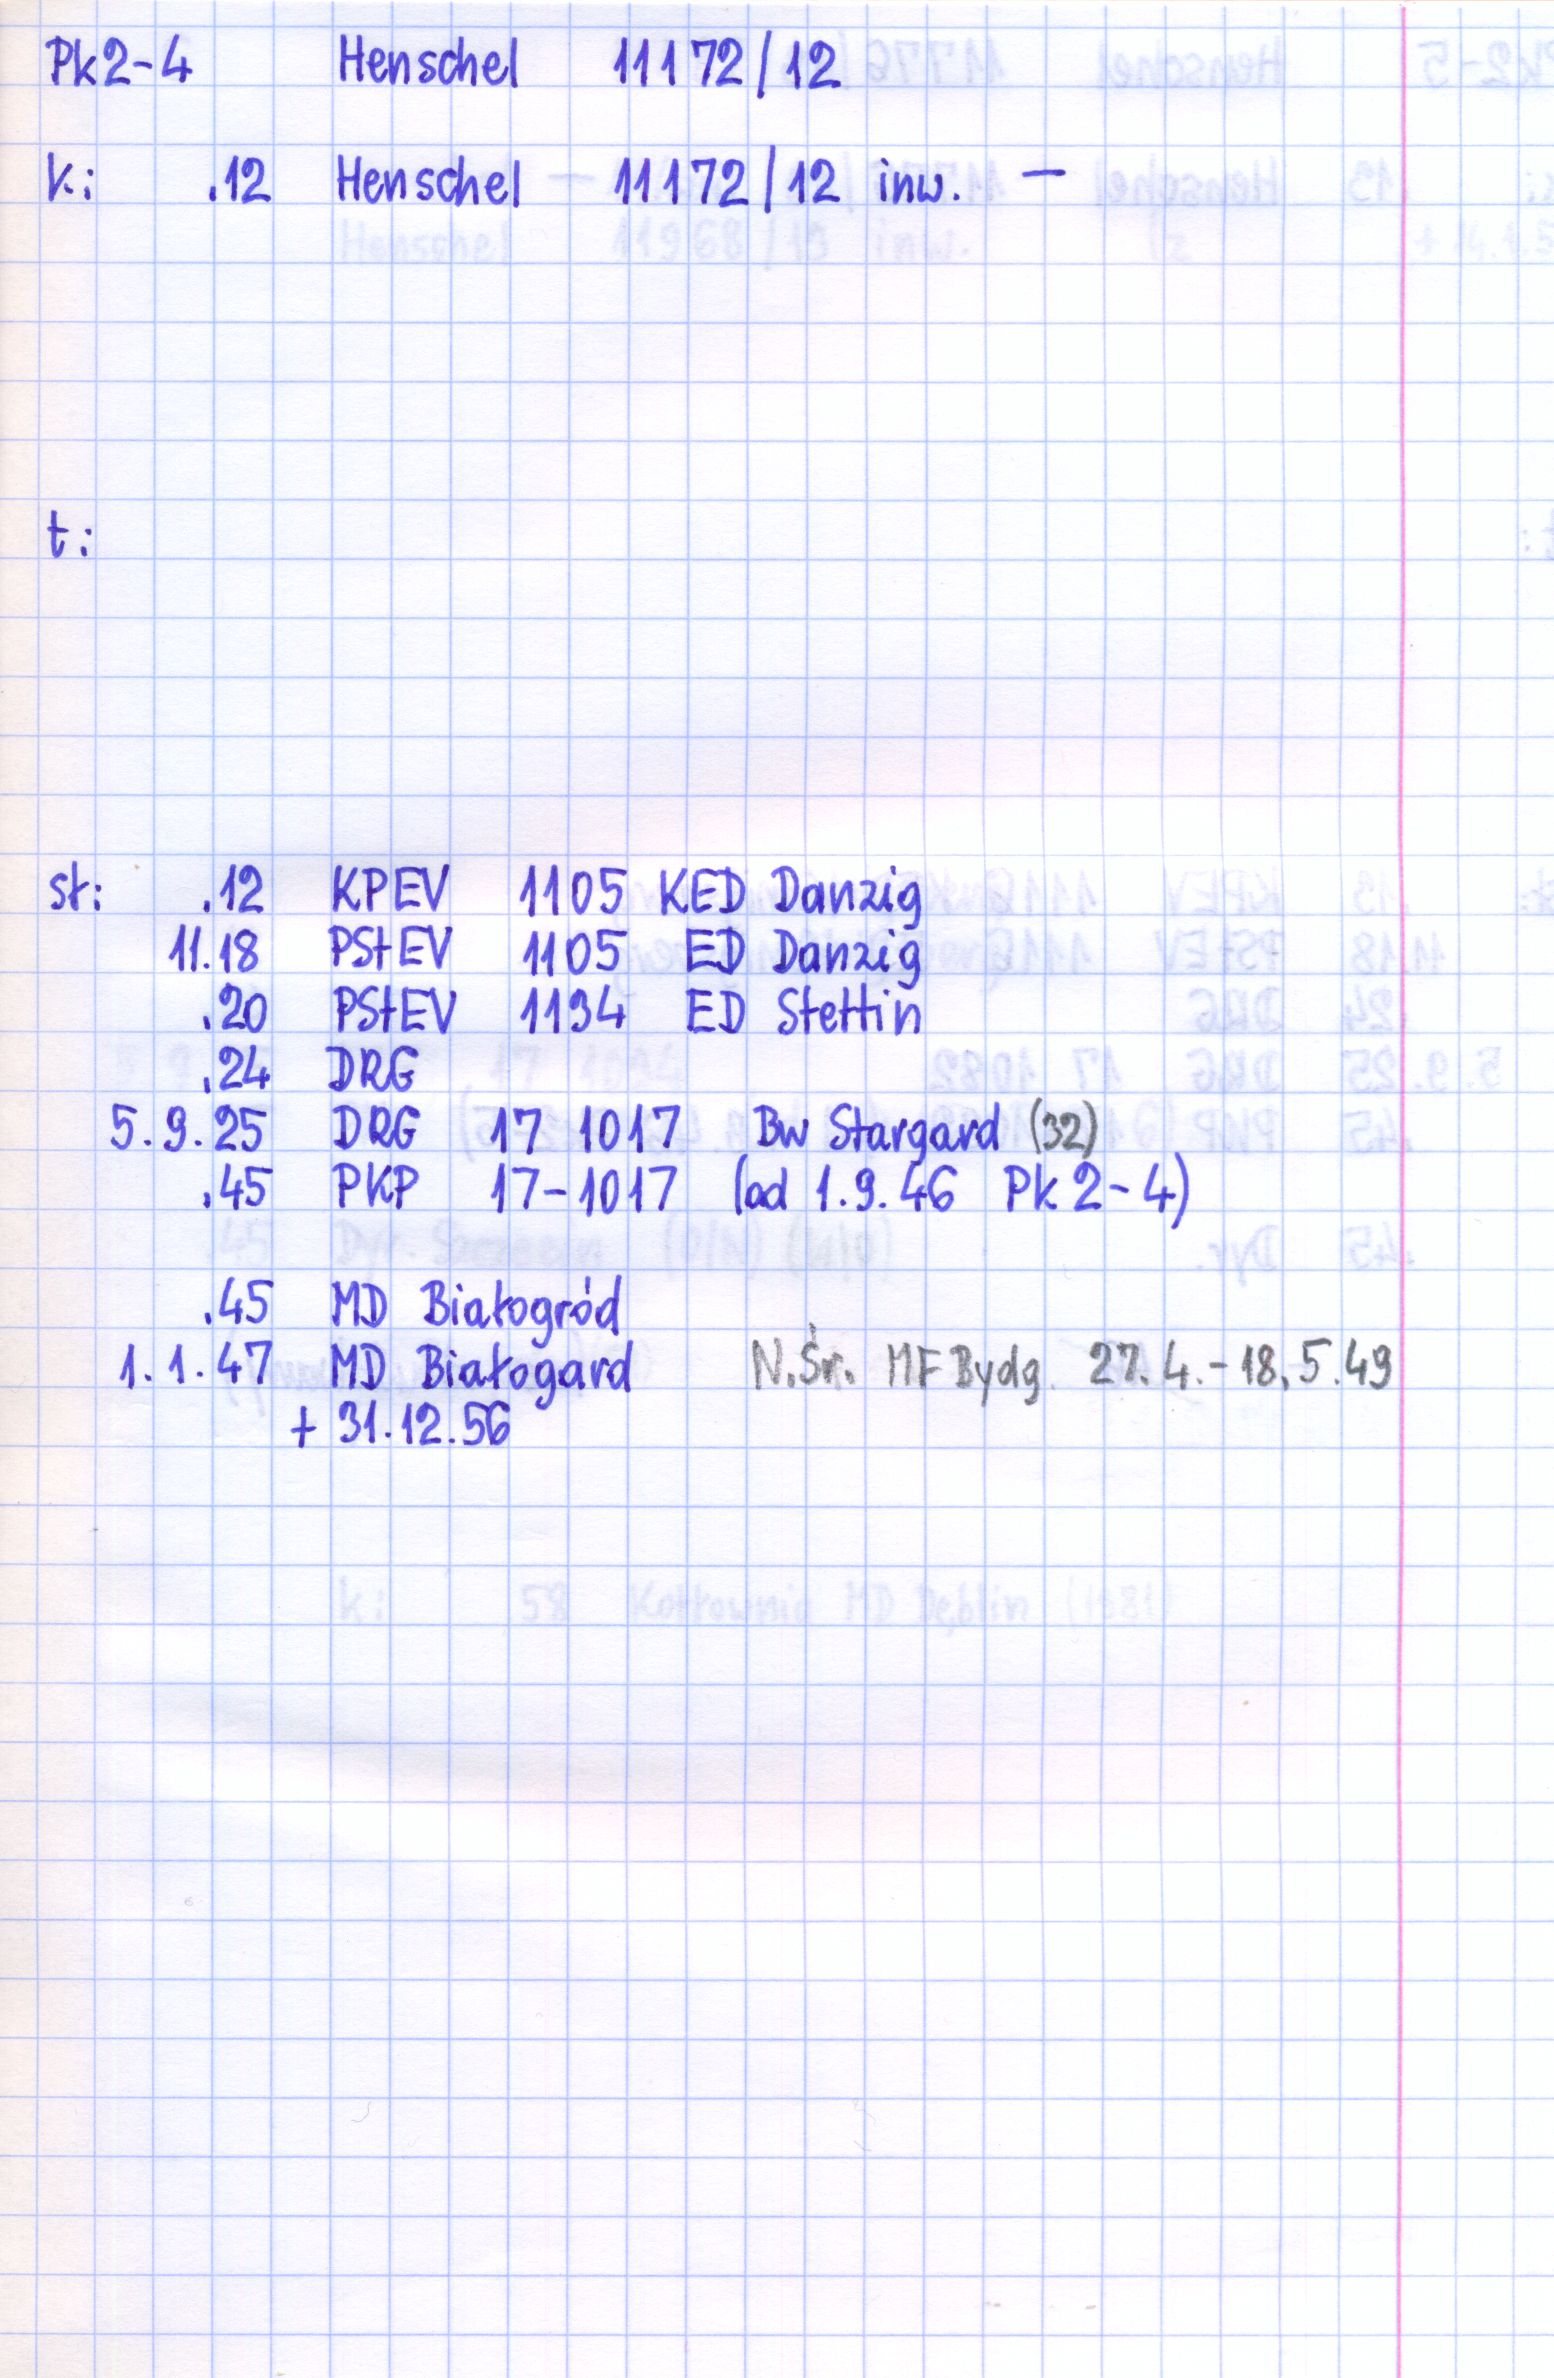 Pk2-4 Henschel 11172/12
k: .12 Henschel - 11172/12 inw. -
t:
st: .12 KPEV 1105 KED Danzig
11.18 PStEV 1105 ED Danzig
.20 PStEV 1134 ED Stettin
.24 DRG
5.9.25 DRG 17 1017 Bw Stargard (32)
.45 PKP 17-1017 (od 1.9.46 Pk2-4)
.45 MD Białogród
1.1.47 MD Białogard N.Śr. MF Bydg. 27.4.-18.5.49
+ 31.12.56